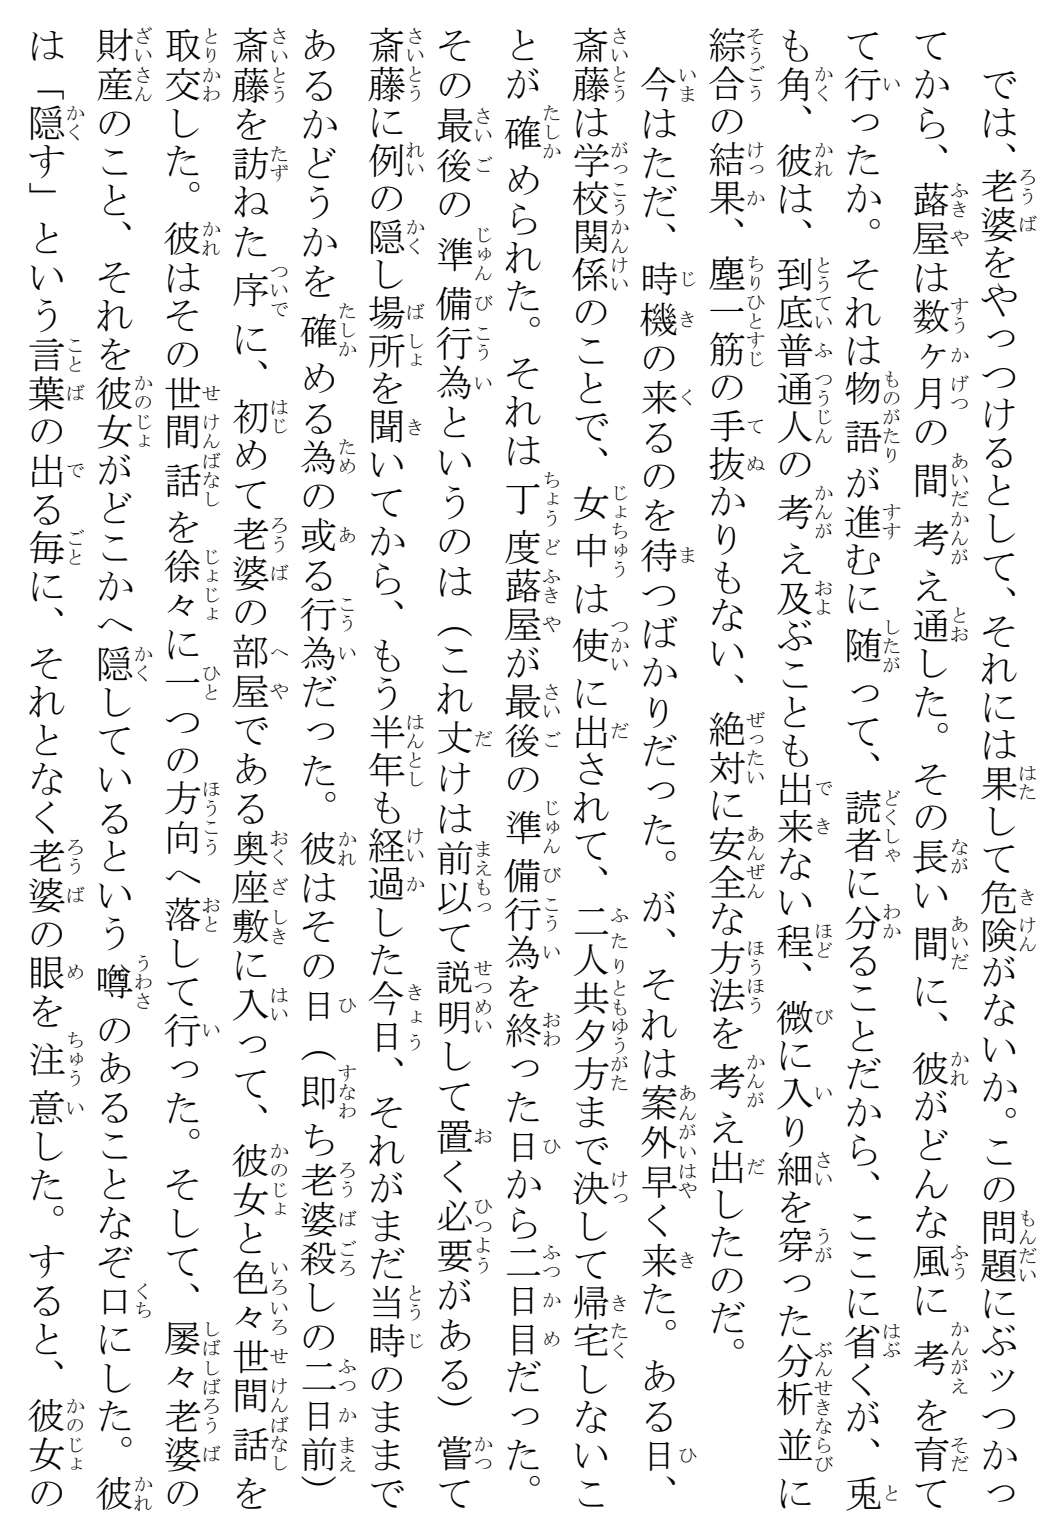 では、老婆をやっつけるとして、それには果して危険がないか。この問題にぶッつかっ
てから、蕗屋は数ヶ月の間考え通した。その長い間に、彼がどんな風に考を育て
て行ったか。それは物語が進むに随って、読者に分ることだから、ここに省くが、兎
も角、彼は、到底普通人の考え及ぶことも出来ない程、微に入り細を穿った分析並に
綜合の結果、塵一筋の手抜かりもない、絶対に安全な方法を考え出したのだ。
　今はただ、時機の来るのを待つばかりだった。が、それは案外早く来た。ある日、
斎藤は学校関係のことで、女中は使に出されて、二人共夕方まで決して帰宅しないこ
とが確められた。それは丁度蕗屋が最後の準備行為を終った日から二日目だった。
その最後の準備行為というのは（これ丈けは前以て説明して置く必要がある）嘗て
斎藤に例の隠し場所を聞いてから、もう半年も経過した今日、それがまだ当時のままで
あるかどうかを確める為の或る行為だった。彼はその日（即ち老婆殺しの二日前）
斎藤を訪ねた序に、初めて老婆の部屋である奥座敷に入って、彼女と色々世間話を
取交した。彼はその世間話を徐々に一つの方向へ落して行った。そして、屡々老婆の
財産のこと、それを彼女がどこかへ隠しているという噂のあることなぞ口にした。彼
は「隠す」という言葉の出る毎に、それとなく老婆の眼を注意した。すると、彼女の